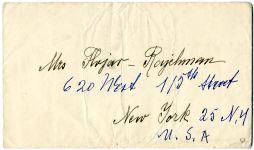 Mrs Flojar-Rajchman
620 West 115th Street
New York 25 N.Y
U.S.A